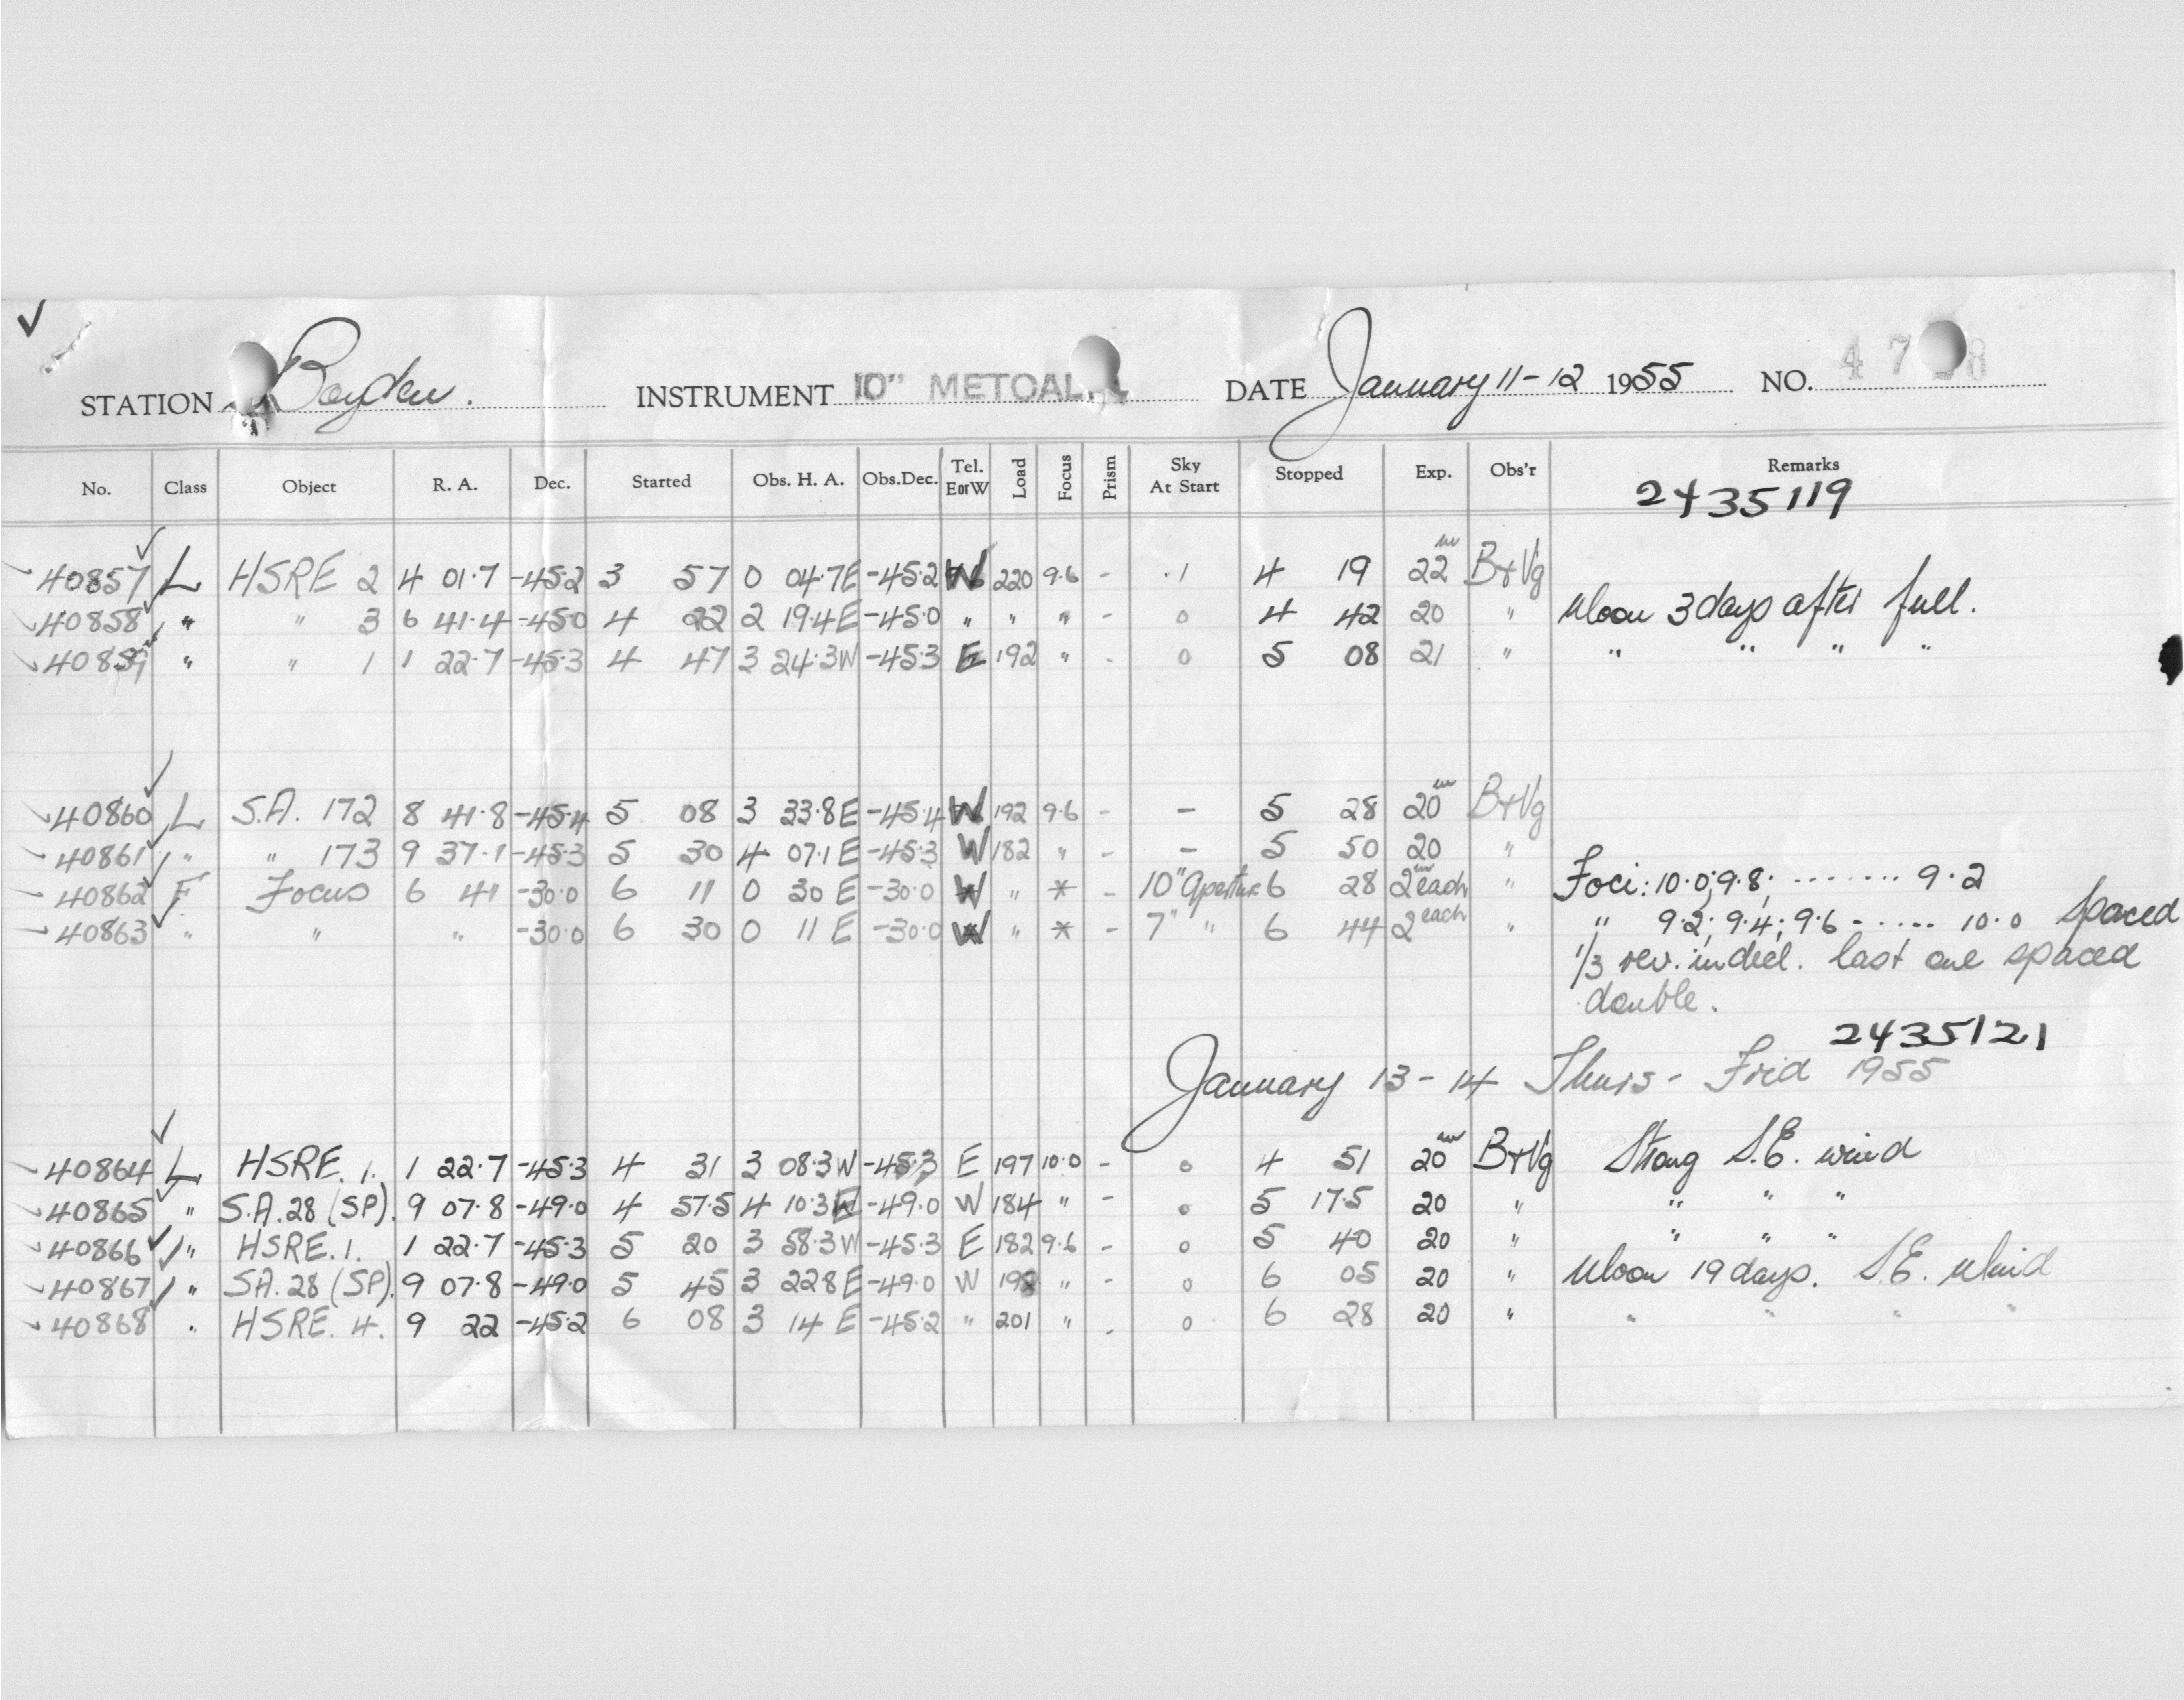 STATION Boyden. INSTRUMENT 10" METCAL DATE January 11-12 1955 NO. 47 8
No. Class Object R. A. Dec. Started Obs. H. A. Obs.Dec. Tel. E or W Load Focus Prism Sky At Start Stopped Exp. Obs'r Remarks
2435119
40857 L HSRE 2 4 01.7 -45.2 3 57 0 04.7E -45.2 W 220 9.6 - .1 4 19 22m B+Vg
40858 " " 3 6 41.4 -45.0 4 22 2 19.4E -45.0 " " " - 0 4 42 20 " Moon 3 days after full.
40859 " " 1 1 22.7 -45.3 4 47 3 24.3W -45.3 E 192 " - 0 5 08 21 " " " " "
40860 L S.A. 172 8 41.8 -45.4 5 08 3 33.8E -45.4 W 192 9.6 - - 5 28 20m B+Vg
40861 " " 173 9 37.1 -45.3 5 30 4 07.1E -45.3 W 182 " - - 5 50 20 "
40862 F Focus 6 41 -30.0 6 11 0 30 E -30.0 W " * - 10" Aperture 6 28 2m each " Foci: 10.0; 9.8; ....... 9.2
40863 " " " -30.0 6 30 0 11 E -30.0 W " * - 7" " 6 44 2 each " " 9.2; 9.4; 9.6 ..... 10.0 Spaced
1/3 rev. in decl. last one spaced
double.
2435121
January 13-14 Thurs - Frid 1955
40864 L HSRE. 1. 1 22.7 -45.3 4 31 3 08.3W -45.3 E 197 10.0 - 0 4 51 20m B+Vg Strong S.E. wind
40865 " S.A. 28 (SP). 9 07.8 -49.0 4 57.5 4 10.3E -49.0 W 184 " - 0 5 17.5 20 " " " "
40866 " HSRE. 1. 1 22.7 -45.3 5 20 3 58.3W -45.3 E 182 9.6 - 0 5 40 20 " " " "
40867 " S.A. 28 (SP). 9 07.8 -49.0 5 45 3 22.8E -49.0 W 198 " - 0 6 05 20 " Moon 19 days. S.E. Wind
40868 " HSRE. 4. 9 22 -45.2 6 08 3 14 E -45.2 " 201 " - 0 6 28 20 " " " " "